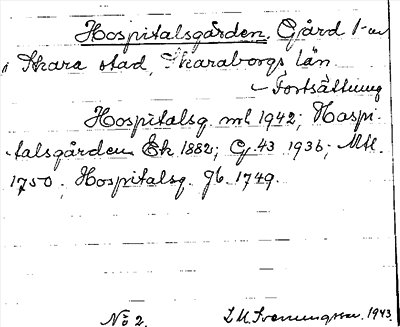 Hospitalsgården. Gård 1-
i Skara stad, Skaraborgs län
– Fortsättning
Hospitalsg. ml 1942; Hospi-
talsgården Ek 1882; GJ. 43 1936; Mtl.
1750; Hospitalsg. Jb. 1749.
No 2. 1943.